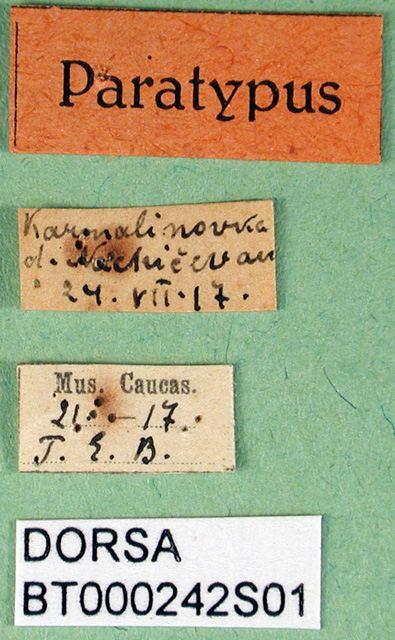 Paratypus
Karmalinovka
d. Nachičevan
24. VII. 17.
Mus. Caucas.
21 – 17.
T. E. B.
DORSA
BT000242S01